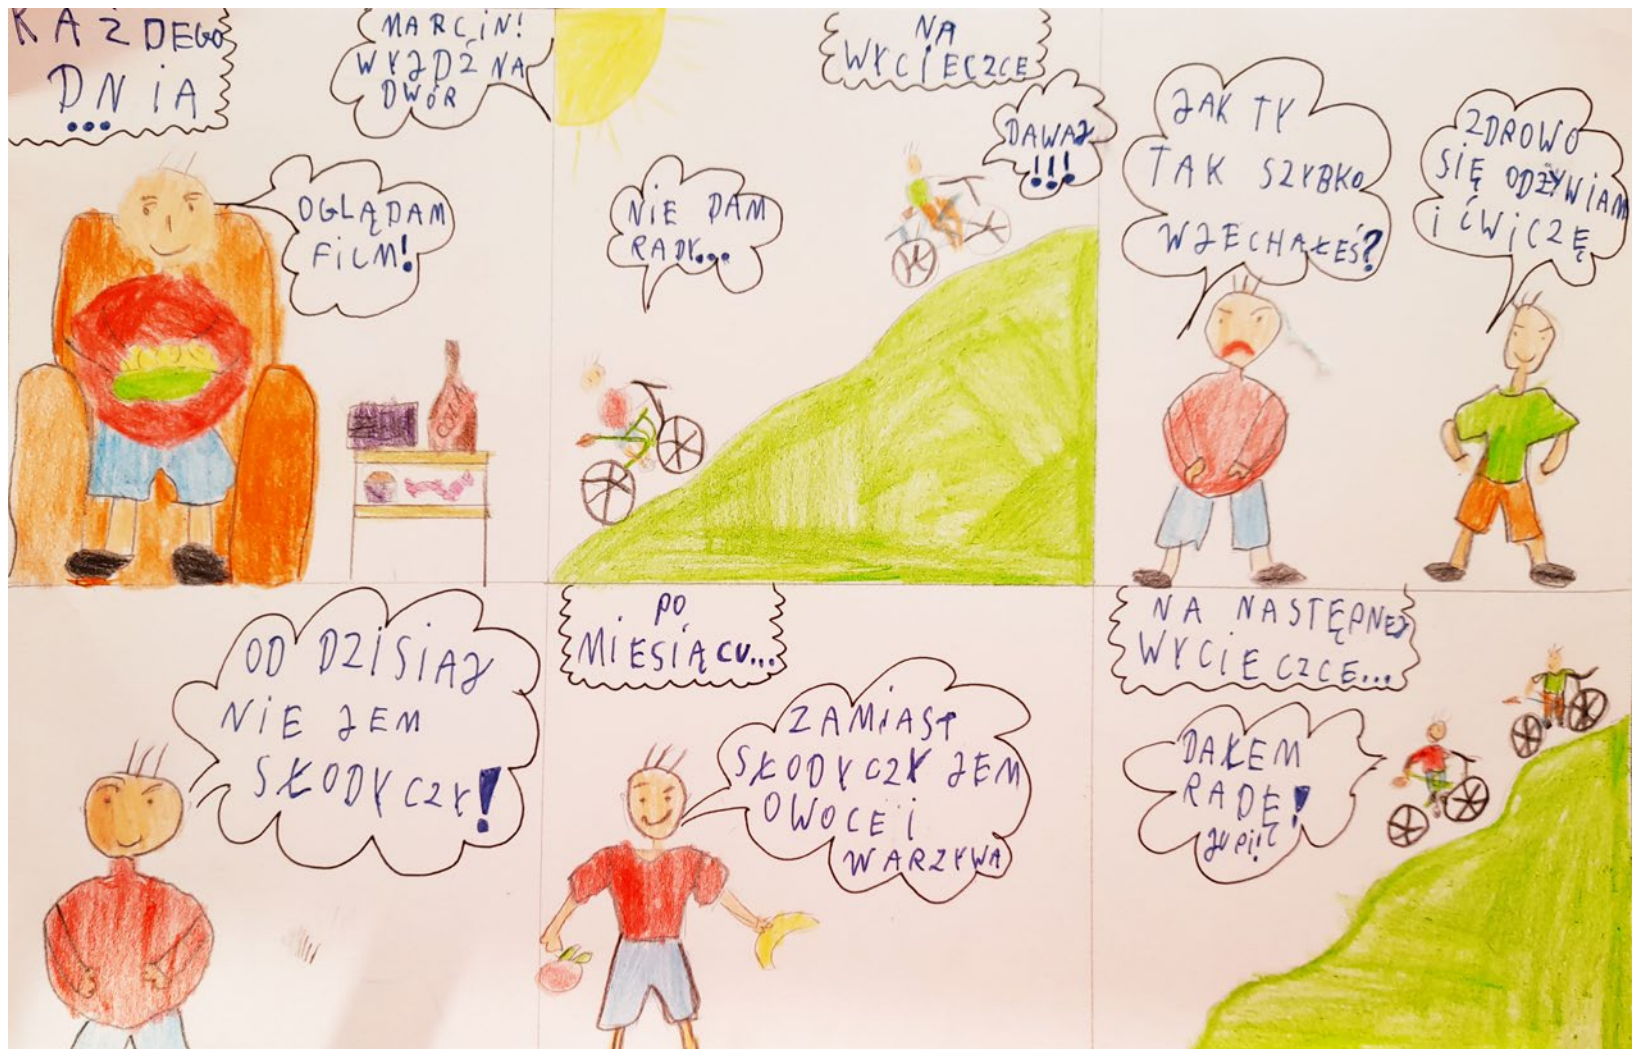 KAŻDEGO
DNIA
...
MARCIN!
WYJDŹ NA
DWÓR
OGLĄDAM
FILM!
COLA
NA
WYCIECZCE
DAWAJ
!!!
NIE DAM
RADY...
JAK TY
TAK SZYBKO
WJECHAŁEŚ?
ZDROWO
SIĘ ODŻYWIAM
I ĆWICZĘ
OD DZISIAJ
NIE JEM
SŁODYCZY!
PO
MIESIĄCU...
ZAMIAST
SŁODYCZY JEM
OWOCE I
WARZYWA
NA NASTĘPNEJ
WYCIECZCE...
DAŁEM
RADĘ!